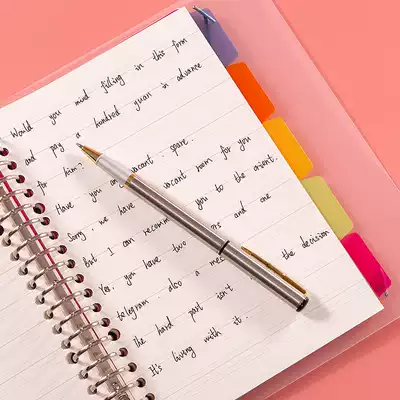 Would you mind filling in this form
and pay a hundred yuan in advance
for him? vacant, spare
Have you any vacant room for you
Sorry, we have to the orient.
But I can recomm you
Yes, you have two rs and one
telegram. also a mes
the hard part isn't the decision
It's living with it.